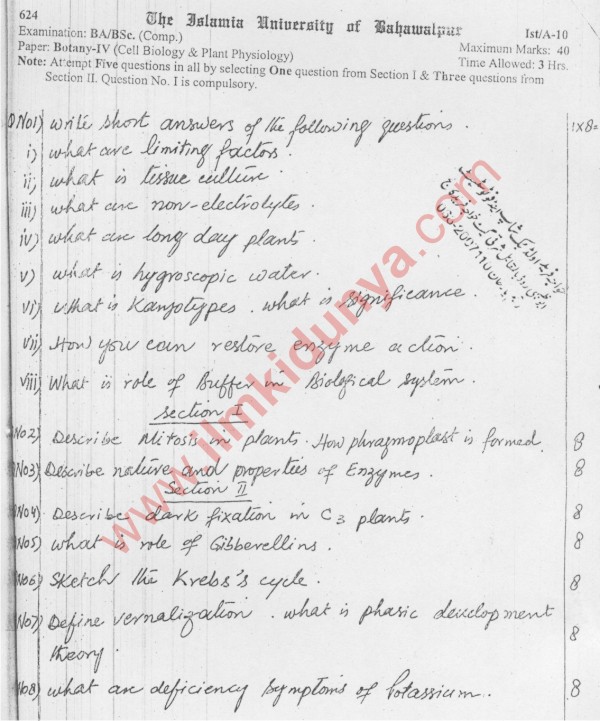 624
The Islamia University of Bahawalpur
Ist/A-10
Examination: BA/BSc. (Comp.)
Maximum Marks: 40
Paper: Botany-IV (Cell Biology & Plant Physiology)
Time Allowed: 3 Hrs.
Note: Attempt Five questions in all by selecting One question from Section I & Three questions from
Section II. Question No. I is compulsory.
QNo1) Write short answers of the following questions. 1x8=
i) what are limiting factors.
ii) what is tissue culture.
iii) what are non-electrolytes.
iv) what are long day plants.
v) what is hygroscopic water.
vi) what is Karyotypes. what is significance.
vii) How you can restore enzyme action.
viii) What is role of Buffer in Biological system.
Section I
No2) Describe Mitosis in plants. How phragmoplast is formed. 8
No3) Describe nature and properties of Enzymes. 8
Section II
No4) Describe dark fixation in C3 plants. 8
No5) what is role of Gibberellins. 8
No6) Sketch the Krebs's cycle. 8
No7) Define vernalization. what is phasic development
theory. 8
No8) what are deficiency symptoms of Potassium. 8
www.ilmkidunya.com